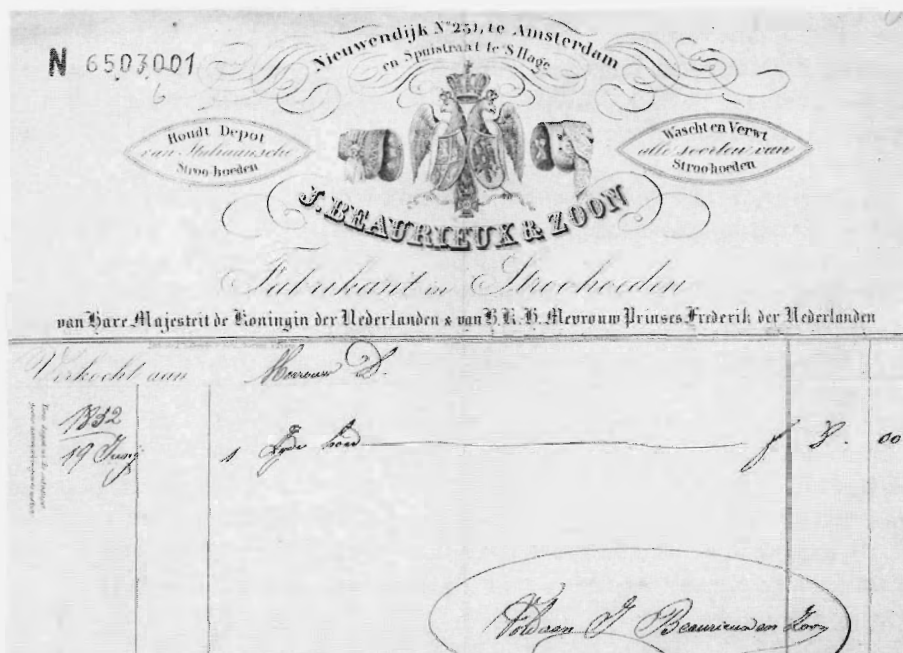 N 6503001
6
Nieuwendijk Nº 251, te Amsterdam
en Spuistraat te 'S Hage
Houdt Depot
van Italiaansche
Stroo-hoeden
Wascht en Verwt
alle soorten van
Stroohoeden
J. BEAURIEUX & ZOON
Fabrikant in Stroohoeden
van Hare Majesteit de Koningin der Nederlanden & van H.K.H. Mevrouw Prinses Frederik der Nederlanden
Verkocht aan Mevrouw D.
1852
19 Juny 1 Zyde hoed f 8. 00
Voldaan J Beaurieux en Zoon